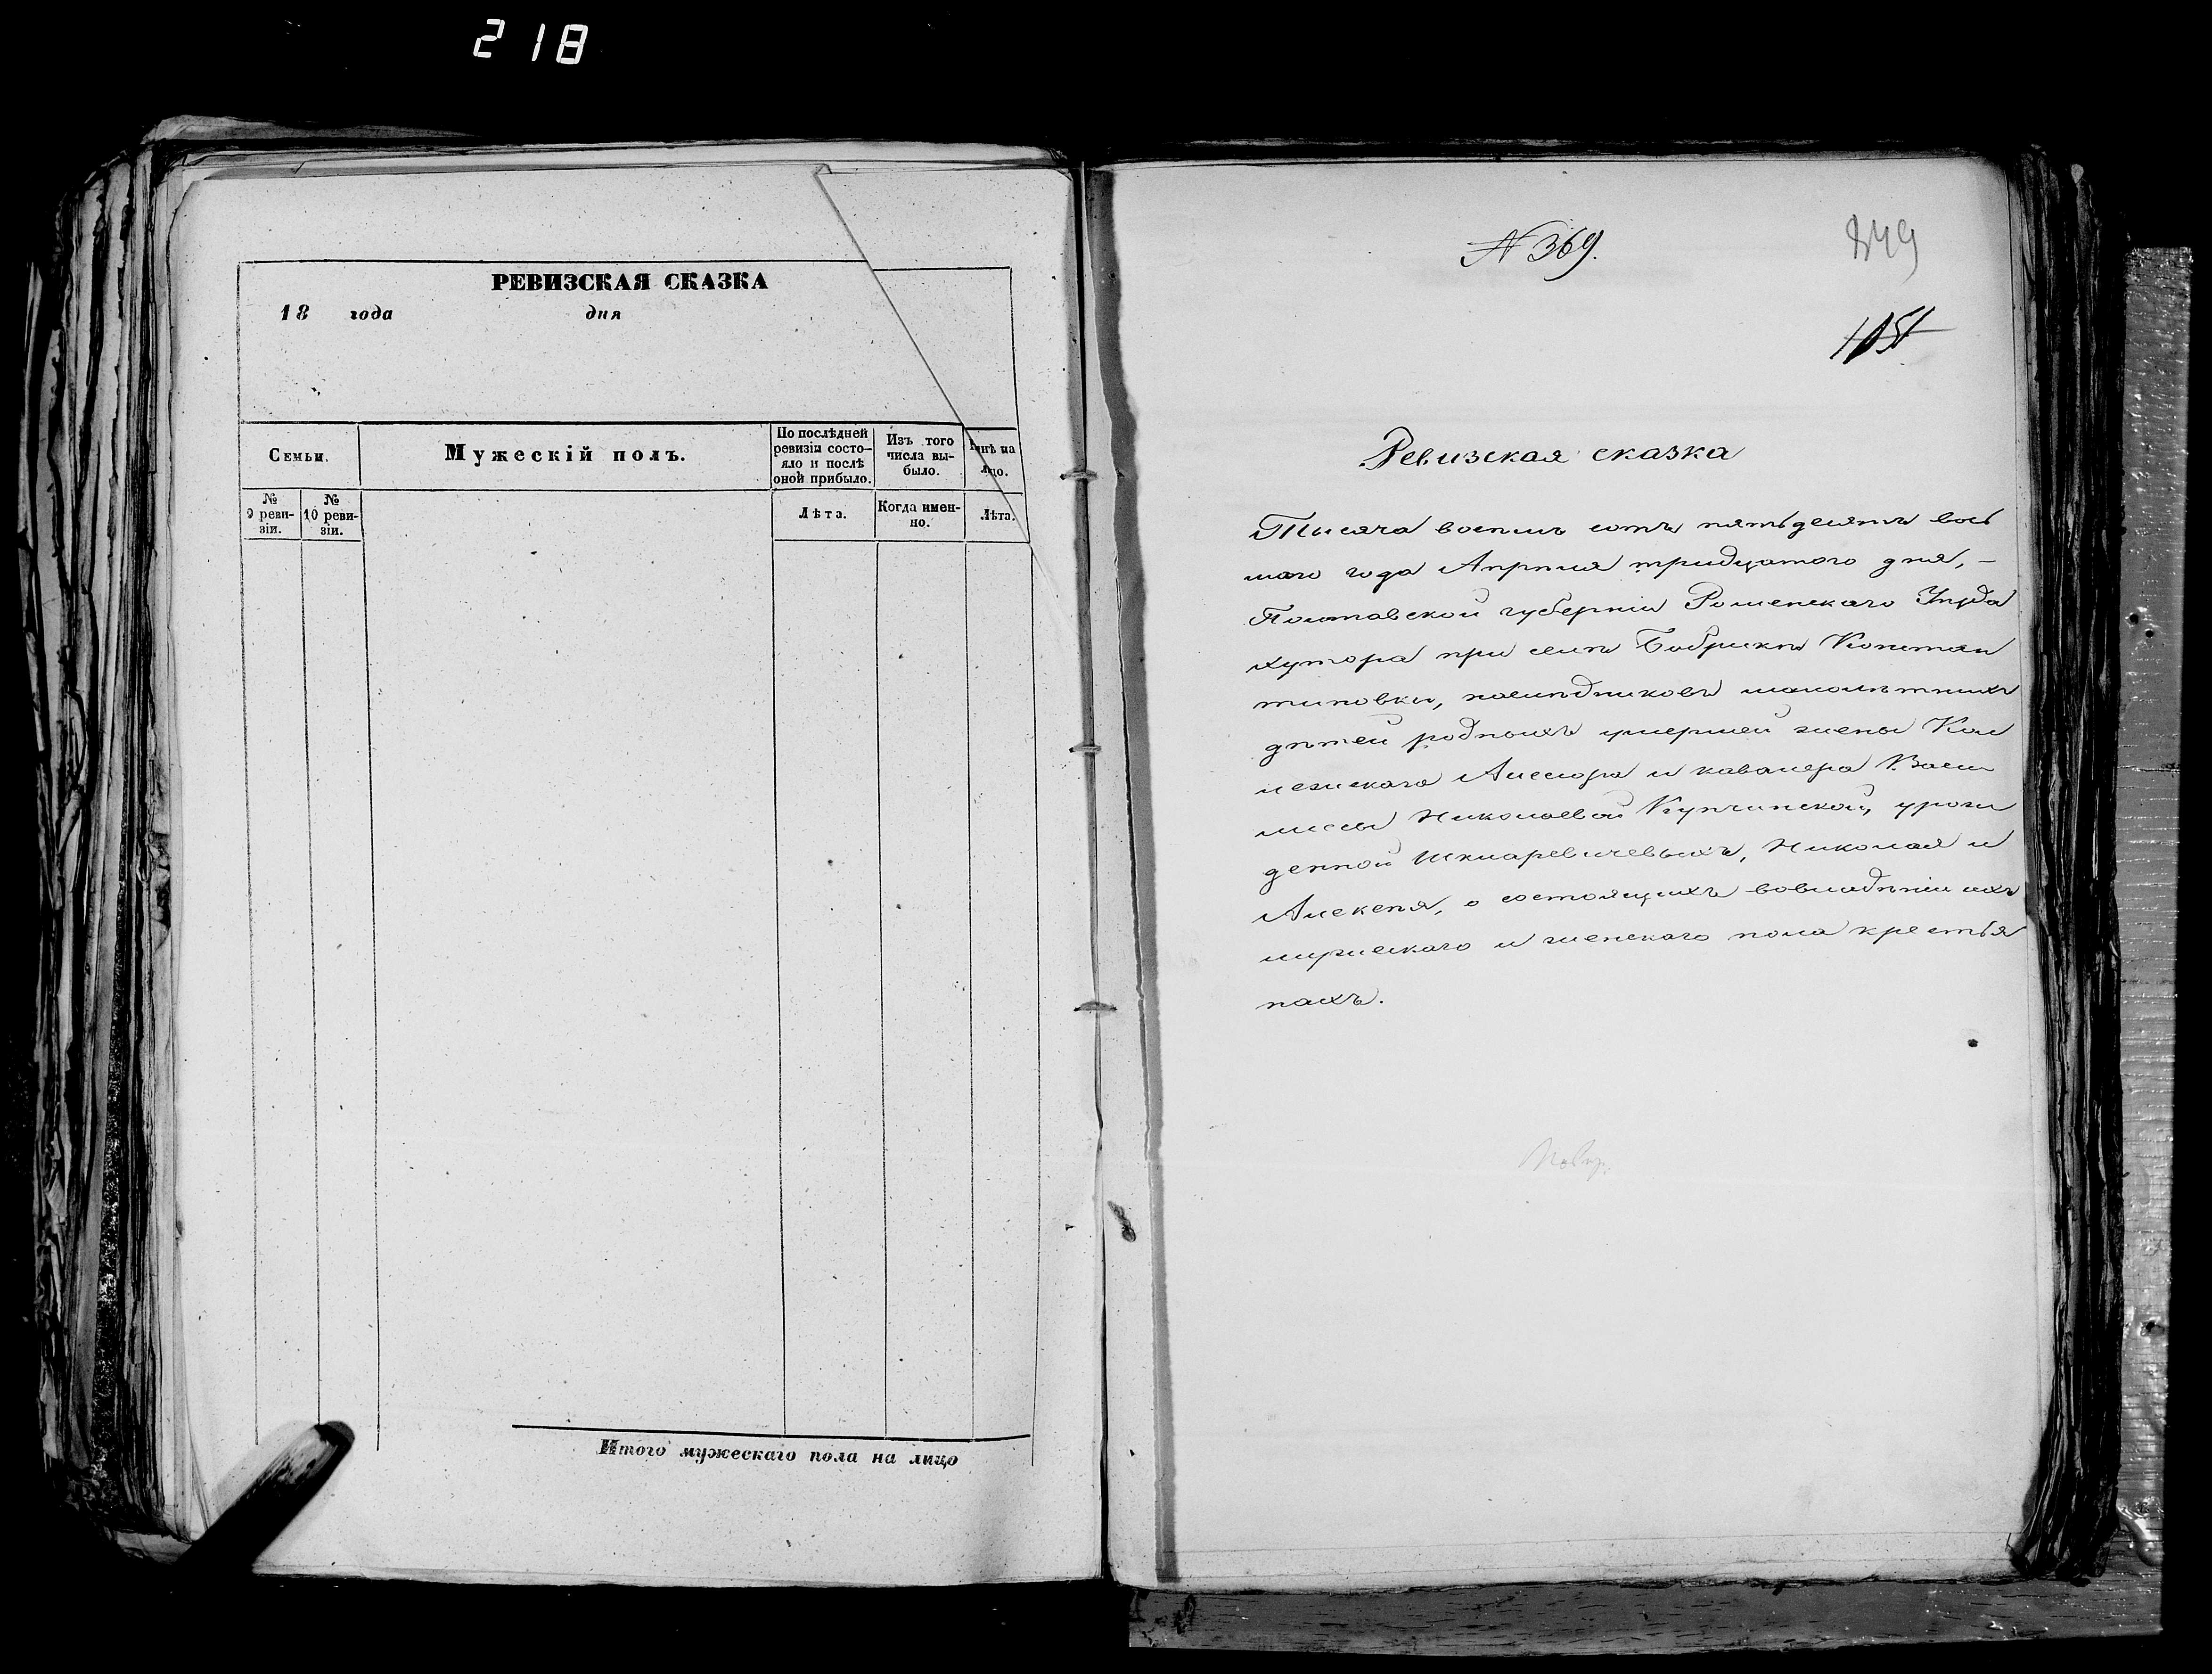 218
РЕВИЗСКАЯ СКАЗКА
18 года дня
Семьи.
Мужескій полъ.
По послѣдней ревизіи состо-
яло и послѣ оной прибыло.
Изъ того числа вы-
было.
на
Лѣта.
Когда имен-
но.
Лѣта.
№ 9 реви-
зіи.
№ 10 реви-
зіи.
Итого мужескаго пола на лицо
N 369.
349
Ревизская сказка
Тысяча восемь сотъ пятьдесятъ вось
маго года Апрѣля тридцатого дня, –
Полтавской губерніи Роменскаго Уѣзда
хутора при селѣ Бобрикѣ Констан
тиновки, наслѣдниковъ малолѣтнихъ
дѣтей родныхъ умершей жены Кол
лежскаго Ассесора и кавалера Васи
лисы Николаевой Купчинской, урож
денной Шкляревичевыхъ, Николая и
Алексѣя, о состоящихъ вовладѣніи ихъ
мужескаго и женскаго пола крестья
нахъ.